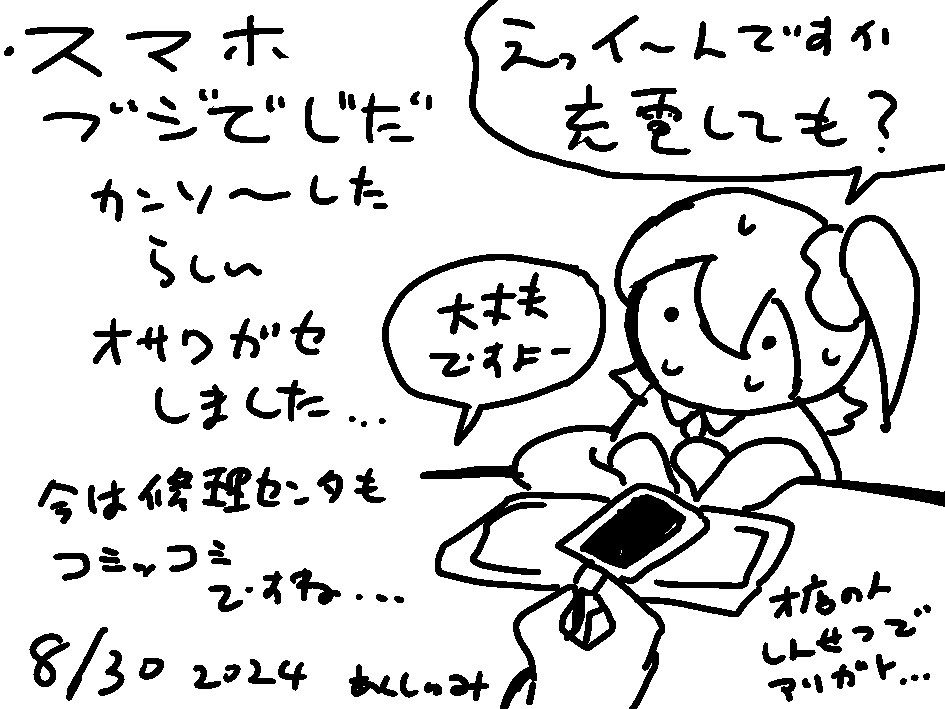 ・スマホ
ブジでじだ
カンソ〜した
らしい
オサワがセ
しました...
今は修理センタも
コミッコミ
ですね...
8/30 2024
えっイ〜んですか
充電しても?
大丈夫
ですよー
オ店の人
しんせつで
アリガト...